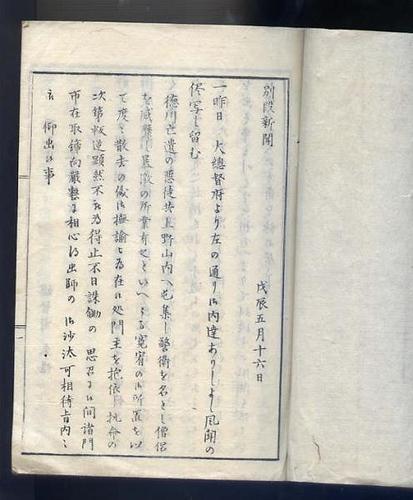 別段新聞
戊辰五月十六日
一昨日 大總督府より左の通り御内達ありしよし風聞の
侭写し留む
徳川亡遺の悪徒共上野山内へ屯集し警衛を名とし僧侶
を威 し暴激の所業有之といへとも寛宥の御所置を以
て度々散去の儀御撫諭被為在候処門主を抱依 抗命の
次第叛逆顕然不被為得止不日誅鋤の 思召に候間諸門
市在取締向厳整に相心得出師の 御沙汰可相待旨内々
被 仰出候事